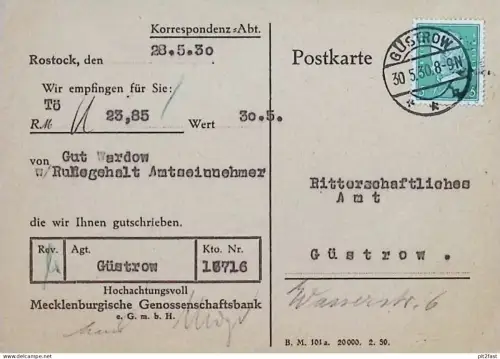 Korrespondenz=Abt.
Rostock, den 28.5.30
Wir empfingen für Sie:
Tö
RM 23,85 Wert 30.5.
von Gut Wardow
w/Rußegehalt Amtseinnehmer
die wir Ihnen gutschrieben.
Rev. Agt. Kto. Nr.
Güstrow 10716
Hochachtungsvoll
Mecklenburgische Genossenschaftsbank
e. G. m. b. H.
Postkarte
GÜSTROW
30.5.30.8-9N
* *
Ritterschaftliches
Amt
Güstrow.
Wasserstr. 6
B. M. 101a. 20000. 2. 30.